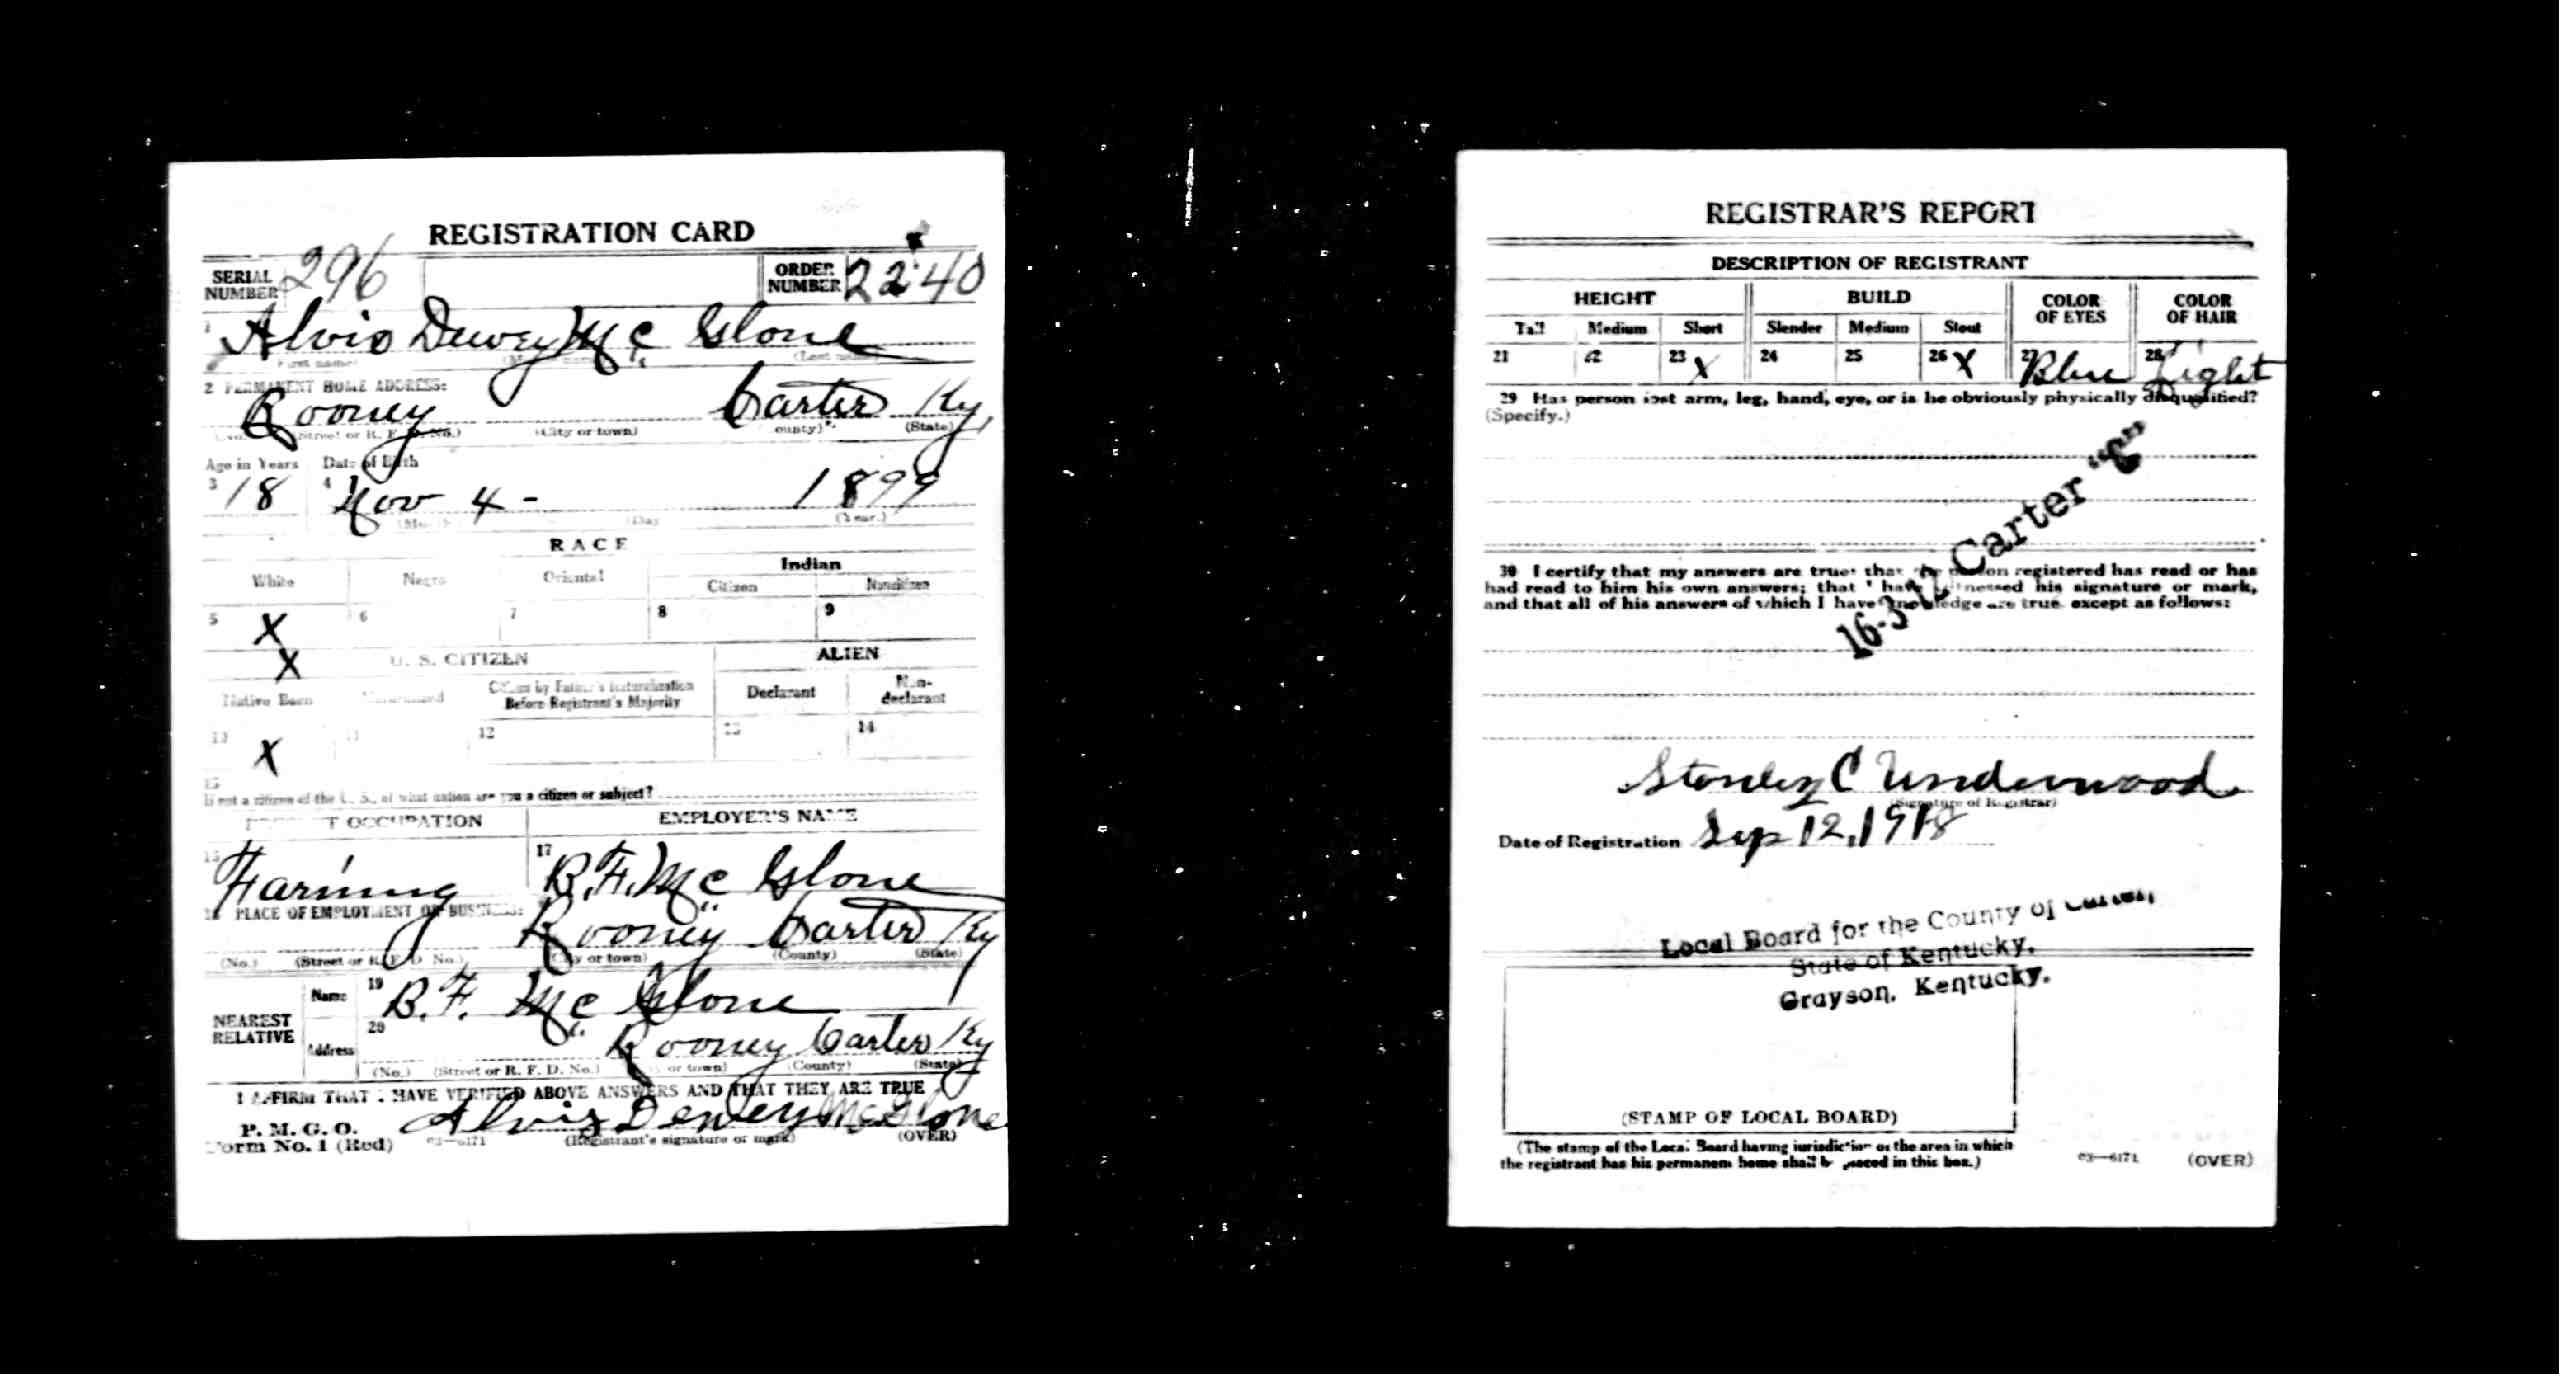 REGISTRATION CARD
SERIAL NUMBER 296 ORDER NUMBER 2240
1 Alvis Dewey Mc Glone
(First name) (Last name)
2 PERMANENT HOME ADDRESS:
Rooney Carter Ky,
(No.) (Street or R. F. D. No.) (City or town) (County) (State)
Age in Years Date of Birth
3 18 4 Nov 4 - 1899
(Month) (Day (Year.)
RACE
White Negro Oriental Indian
Citizen Noncitizen
5 X 6 7 8 9
X U. S. CITIZEN ALIEN
Native Born Naturalized Citizen by Father's Naturalization Before Registrant's Majority Declarant Non-declarant
10 X 11 12 13 14
15
If not a citizen of the U. S., of what nation are you a citizen or subject?
PRESENT OCCUPATION EMPLOYER'S NAME
16 Farming 17 B.F. Mc Glone
18 PLACE OF EMPLOYMENT OR BUSINESS:
Rooney Carter Ky
(No.) (Street or R. F. D. No.) (City or town) (County) (State)
NEAREST RELATIVE Name 19 B. F. Mc Glone
Address 20 Rooney Carter Ky
(No.) (Street or R. F. D. No.) (City or town) (County) (State)
I AFFIRM THAT I HAVE VERIFIED ABOVE ANSWERS AND THAT THEY ARE TRUE
P. M. G. O. Alvis Dewey McGlone
Form No. 1 (Red) 03—6171 (Registrant's signature or mark) (OVER)
REGISTRAR'S REPORT
DESCRIPTION OF REGISTRANT
HEIGHT BUILD COLOR OF EYES COLOR OF HAIR
Tall Medium Short Slender Medium Stout
21 22 23 X 24 25 26 X 27 Blue 28 Light
29 Has person lost arm, leg, hand, eye, or is he obviously physically disqualified?
(Specify.)
16-3-12 Carter "C"
30 I certify that my answers are true; that the person registered has read or has
had read to him his own answers; that I have witnessed his signature or mark,
and that all of his answers of which I have knowledge are true, except as follows:
Stanley C Underwood
(Signature of Registrar)
Date of Registration Sep 12, 1918
Local Board for the County of Carter,
State of Kentucky,
Grayson, Kentucky.
(STAMP OF LOCAL BOARD)
(The stamp of the Local Board having jurisdiction of the area in which
the registrant has his permanent home shall be placed in this box.)
03—6171 (OVER)